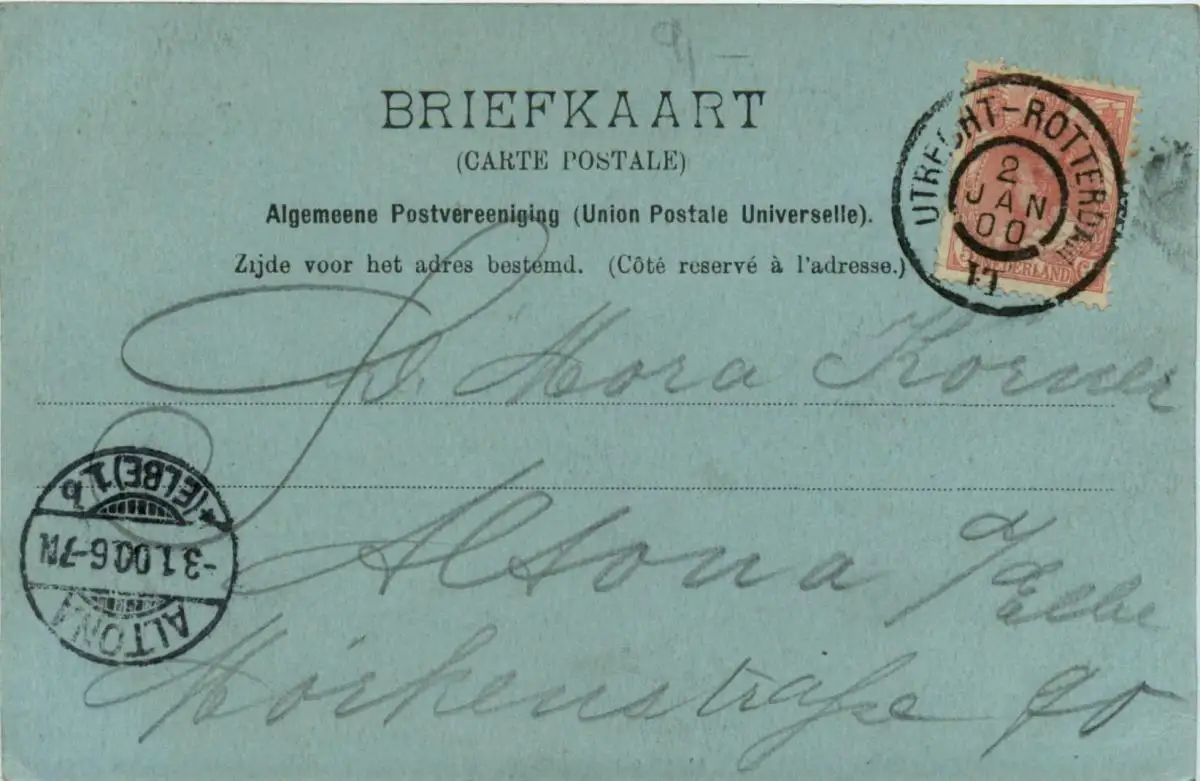 BRIEFKAART
(CARTE POSTALE)
Algemeene Postvereeniging (Union Postale Universelle).
Zijde voor het adres bestemd. (Côté reservé à l'adresse.)
UTRECHT-ROTTERDAM
2
JAN
00
NEDERLAND
Mora Körner
Altona a/Elbe
Mörkenstraße 90
ALTONA
-3.1.00.6-7N
*(ELBE)1.b